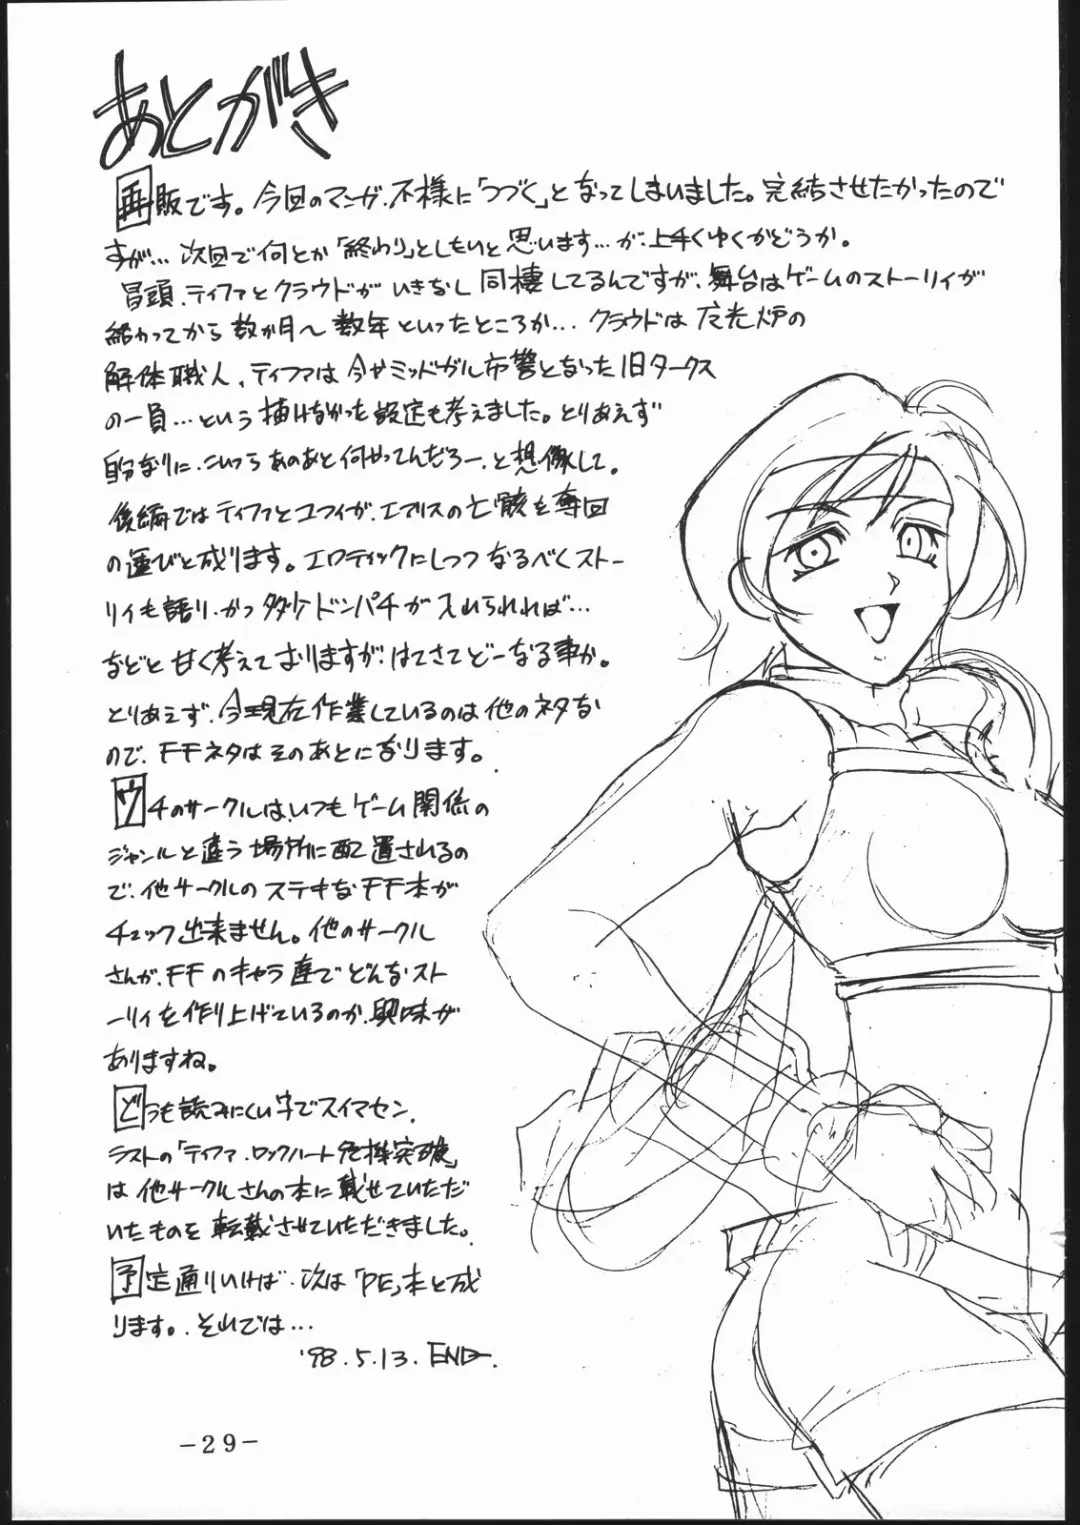 あとがき
再販です。今回のマンガ、不様に「つづく」となってしまいました。完結させたかったので
すが…次回で何とか「終わり」としたいと思います…が、上手くゆくかどうか。
冒頭、ティファとクラウドがいきなし同棲してるんですが、舞台はゲームのストーリィが
終わってから数か月〜数年といったところか…クラウドは魔晄炉の
解体職人、ティファは今やミッドガル市警となった旧タークス
の一員…という描けなかった設定も考えました。とりあえず
自分なりに、こいつらあのあと何やってんだろー、と想像して。
後編ではティファとユフィが、エアリスの亡骸を奪回
の運びと成ります。エロティックにしつつなるべくストー
リィも語り、かつ多少ドンパチが入れられれば…
などと甘く考えておりますが、はてさてどーなる事か。
とりあえず、今現在作業しているのは他のネタな
ので、FFネタはそのあとになります。
ウチのサークルは、いつもゲーム関係の
ジャンルと違う場所に配置されるの
で、他サークルのステキなFF本が
チェック出来ません。他のサークル
さんが、FFのキャラ達でどんなスト
ーリィを作り上げているのか、興味が
ありますね。
どうも読みにくい字でスイマセン、
ラストの「ティファ・ロックハート危機突破」
は他サークルさんの本に載せていただ
いたものを転載させていただきました。
予定通りいけば、次は「PE」本と成
ります。それでは…
'98.5.13. END
-29-